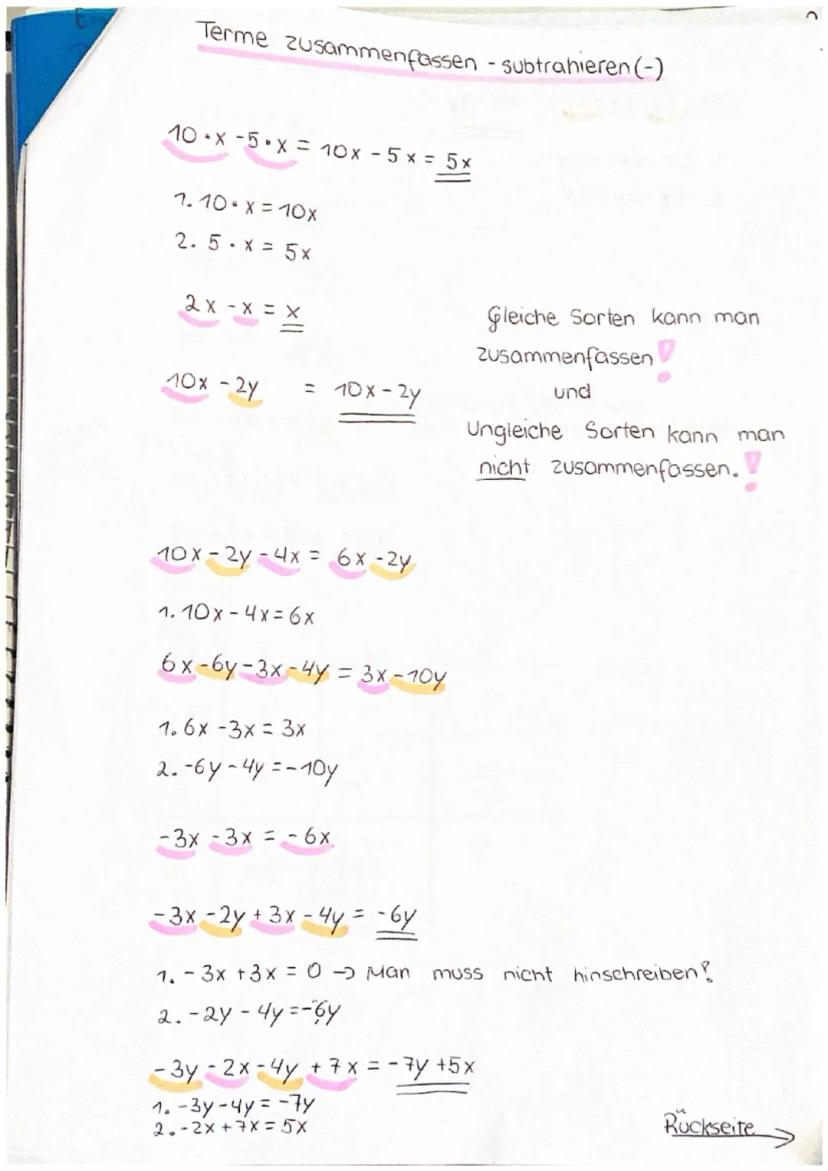 Terme zusammenfassen - subtrahieren (-)
10 · x - 5 · x = 10x - 5x = 5x
1. 10 · x = 10x
2. 5 · x = 5x
2x - x = x
Gleiche Sorten kann man
zusammenfassen!
10x - 2y = 10x - 2y
und
Ungleiche Sorten kann man
nicht zusammenfassen.!
10x - 2y - 4x = 6x - 2y
1. 10x - 4x = 6x
6x - 6y - 3x - 4y = 3x - 10y
1. 6x - 3x = 3x
2. -6y - 4y = -10y
-3x - 3x = -6x
-3x - 2y + 3x - 4y = -6y
1. -3x + 3x = 0 → Man muss nicht hinschreiben!
2. -2y - 4y = -6y
-3y - 2x - 4y + 7x = -7y + 5x
1. -3y - 4y = -7y
2. -2x + 7x = 5x
Rückseite →